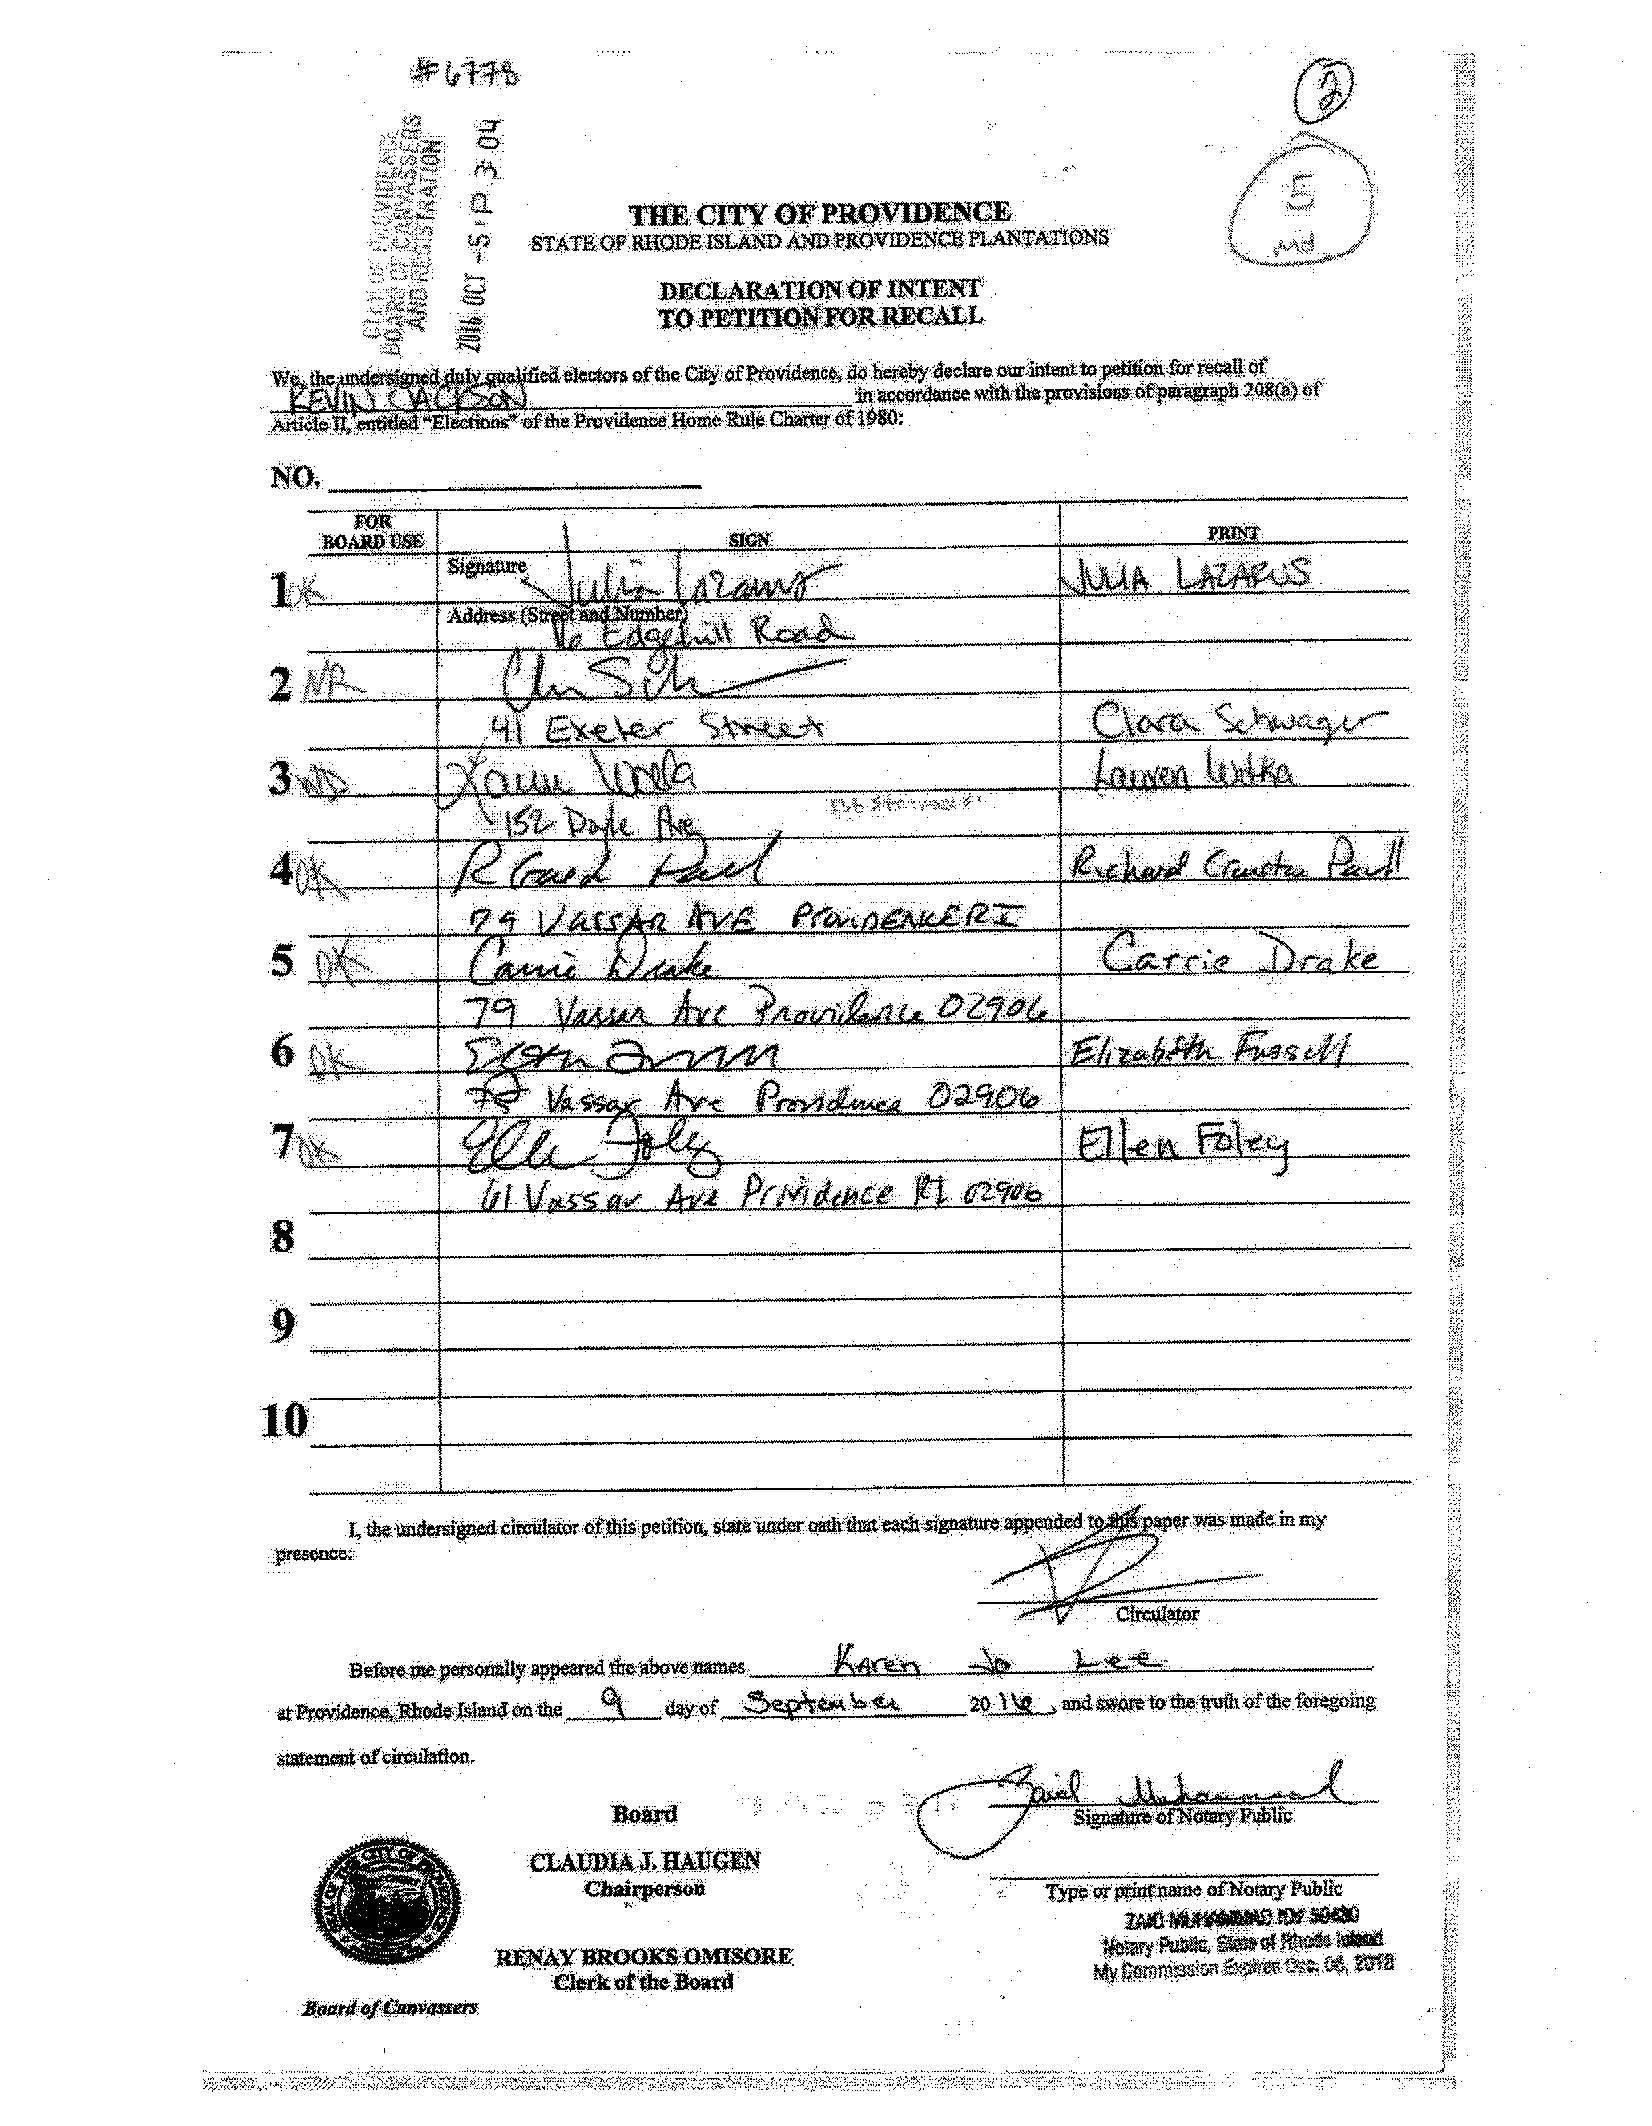 #6778
2
CITY OF PROVIDENCE
BOARD OF CANVASSERS
AND REGISTRATION
2016 OCT -5 P 3:04
5
md
THE CITY OF PROVIDENCE
STATE OF RHODE ISLAND AND PROVIDENCE PLANTATIONS
DECLARATION OF INTENT
TO PETITION FOR RECALL
We, the undersigned duly qualified electors of the City of Providence, do hereby declare our intent to petition for recall of
KEVIN JACKSON in accordance with the provisions of paragraph 208(a) of
Article II, entitled "Elections" of the Providence Home Rule Charter of 1980:
NO.
FOR BOARD USE SIGN PRINT
1 OK Signature Julia Lazarus JULIA LAZARUS
Address (Street and Number)
Edgehill Road
2 NR
41 Exeter Street Clara Schwager
3 Lauren
152 Doyle Ave
4 OK Richard Paull
79 VASSAR AVE PROVIDENCE RI
5 OK Carrie Drake Carrie Drake
79 Vassar Ave Providence 02906
6 OK Elizabeth Fussell
Vassar Ave Providence 02906
7 OK Ellen Foley Ellen Foley
61 Vassar Ave Providence RI 02906
8
9
10
I, the undersigned circulator of this petition, state under oath that each signature appended to this paper was made in my
presence:
Circulator
Before me personally appeared the above names Karen Jo Lee
at Providence, Rhode Island on the 9 day of September 2016, and swore to the truth of the foregoing
statement of circulation.
Zaid Muhammad
Board Signature of Notary Public
CLAUDIA J. HAUGEN
Chairperson Type or print name of Notary Public
ZAID MUHAMMAD ID#
RENAY BROOKS OMISORE Notary Public, State of Rhode Island
Clerk of the Board My Commission Expires Dec. 06, 2018
Board of Canvassers